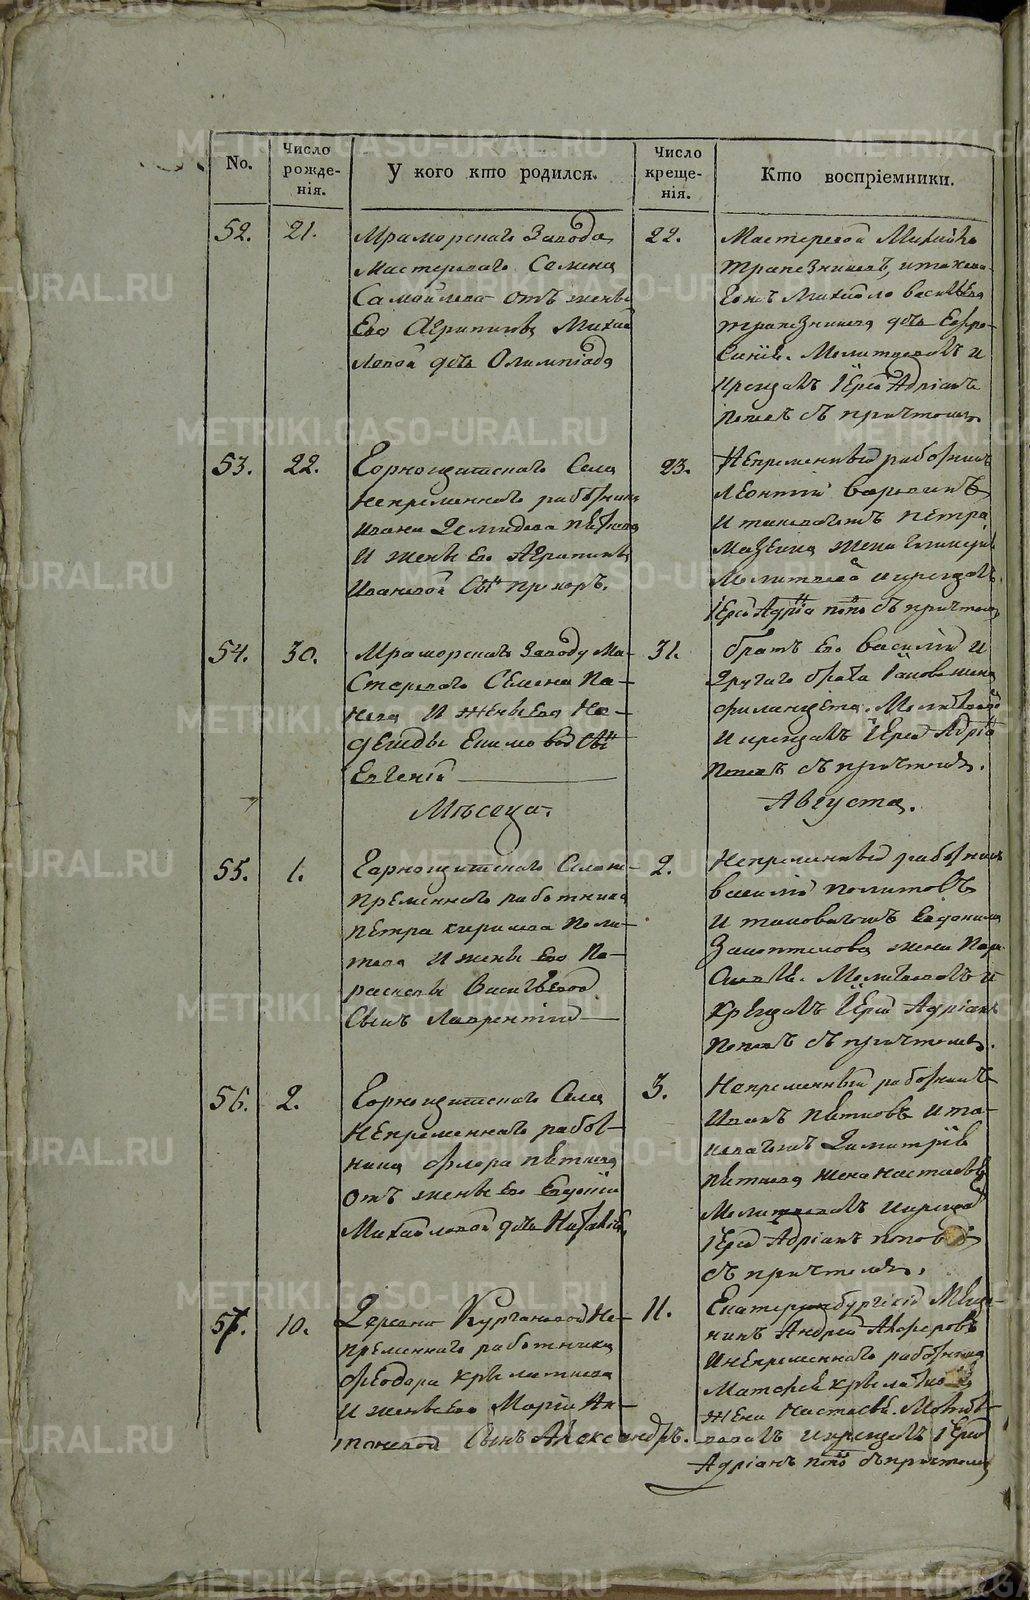 No.
Число рожде-нія.
У кого кто родился.
Число креще-нія.
Кто воспріемники.
52.
21.
Мраморскаго Завода
мастероваго Семена
Самойлова отъ жены
Его Агрипины Михай
ловой дочь Олимпіада
22.
Мастеровой Михайло
трапезниковъ, и таково
гожъ Михайло Васильева
трапезникова дочь Ефро-
синія. Молитвовалъ и
крещалъ Іерей Адріанъ
Поповъ съ причтомъ
53.
22.
Горнощитскаго Села
непременнаго работника
Ивана Демидова
и жены Его Агрипины
Ивановой сынъ Прохоръ.
23.
Непременный работникъ
Леонтій
и таковагожъ Петра
жена
Молитвовалъ и крещалъ
Іерей Адріанъ Поповъ съ причтомъ
54.
30.
Мраморскаго Заводу Ма-
стероваго Семена По-
пова и жены Его На-
дежды Екимовой сынъ
Евгеній
31.
братъ Его Василій и
другаго брата жена
Молитвовалъ
и крещалъ Іерей Адріанъ
Поповъ съ причтомъ.
Месяца.
Августа.
55.
1.
Горнощитскаго Села не-
пременнаго работника
Петра Кирилова Поли-
това и жены Его Па-
расковьи Васильевой
Сынъ Лаврентій
2.
Непременный работникъ
Василій Политовъ
и таковагожъ Евдокима
жена Пара-
сковья. Молитвовалъ и
крещалъ Іерей Адріанъ
Поповъ съ причтомъ.
56.
2.
Горнощитскаго Села
Непременнаго работ-
ника Флора Пяткова
отъ жены Его Евдокіи
Михайловой дочь Наталія
3.
Непременный работникъ
Иванъ Пятковъ и та-
ковагожъ Димитрія
Пяткова жена Настасья
Молитвовалъ и крещалъ
Іерей Адріанъ Поповъ
съ причтомъ.
57.
10.
Деревни Кургановой Не-
пременнаго работника
Феодора Крылаткова
и жены Его Маріи Ан-
тоновой Сынъ Александръ.
11.
Екатеринбургскій Мѣща-
нинъ Андрей
и непременнаго работника
Матфея Крылаткова
жена Настасья. Молитв-
овалъ и крещалъ Іерей
Адріанъ Поповъ съ причтомъ
METRIKI.GASO-URAL.RU